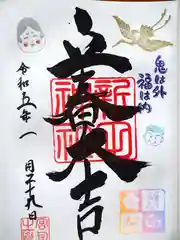 鬼は外
福は内
立春大吉
新山神社
令和五年一
月二十九日